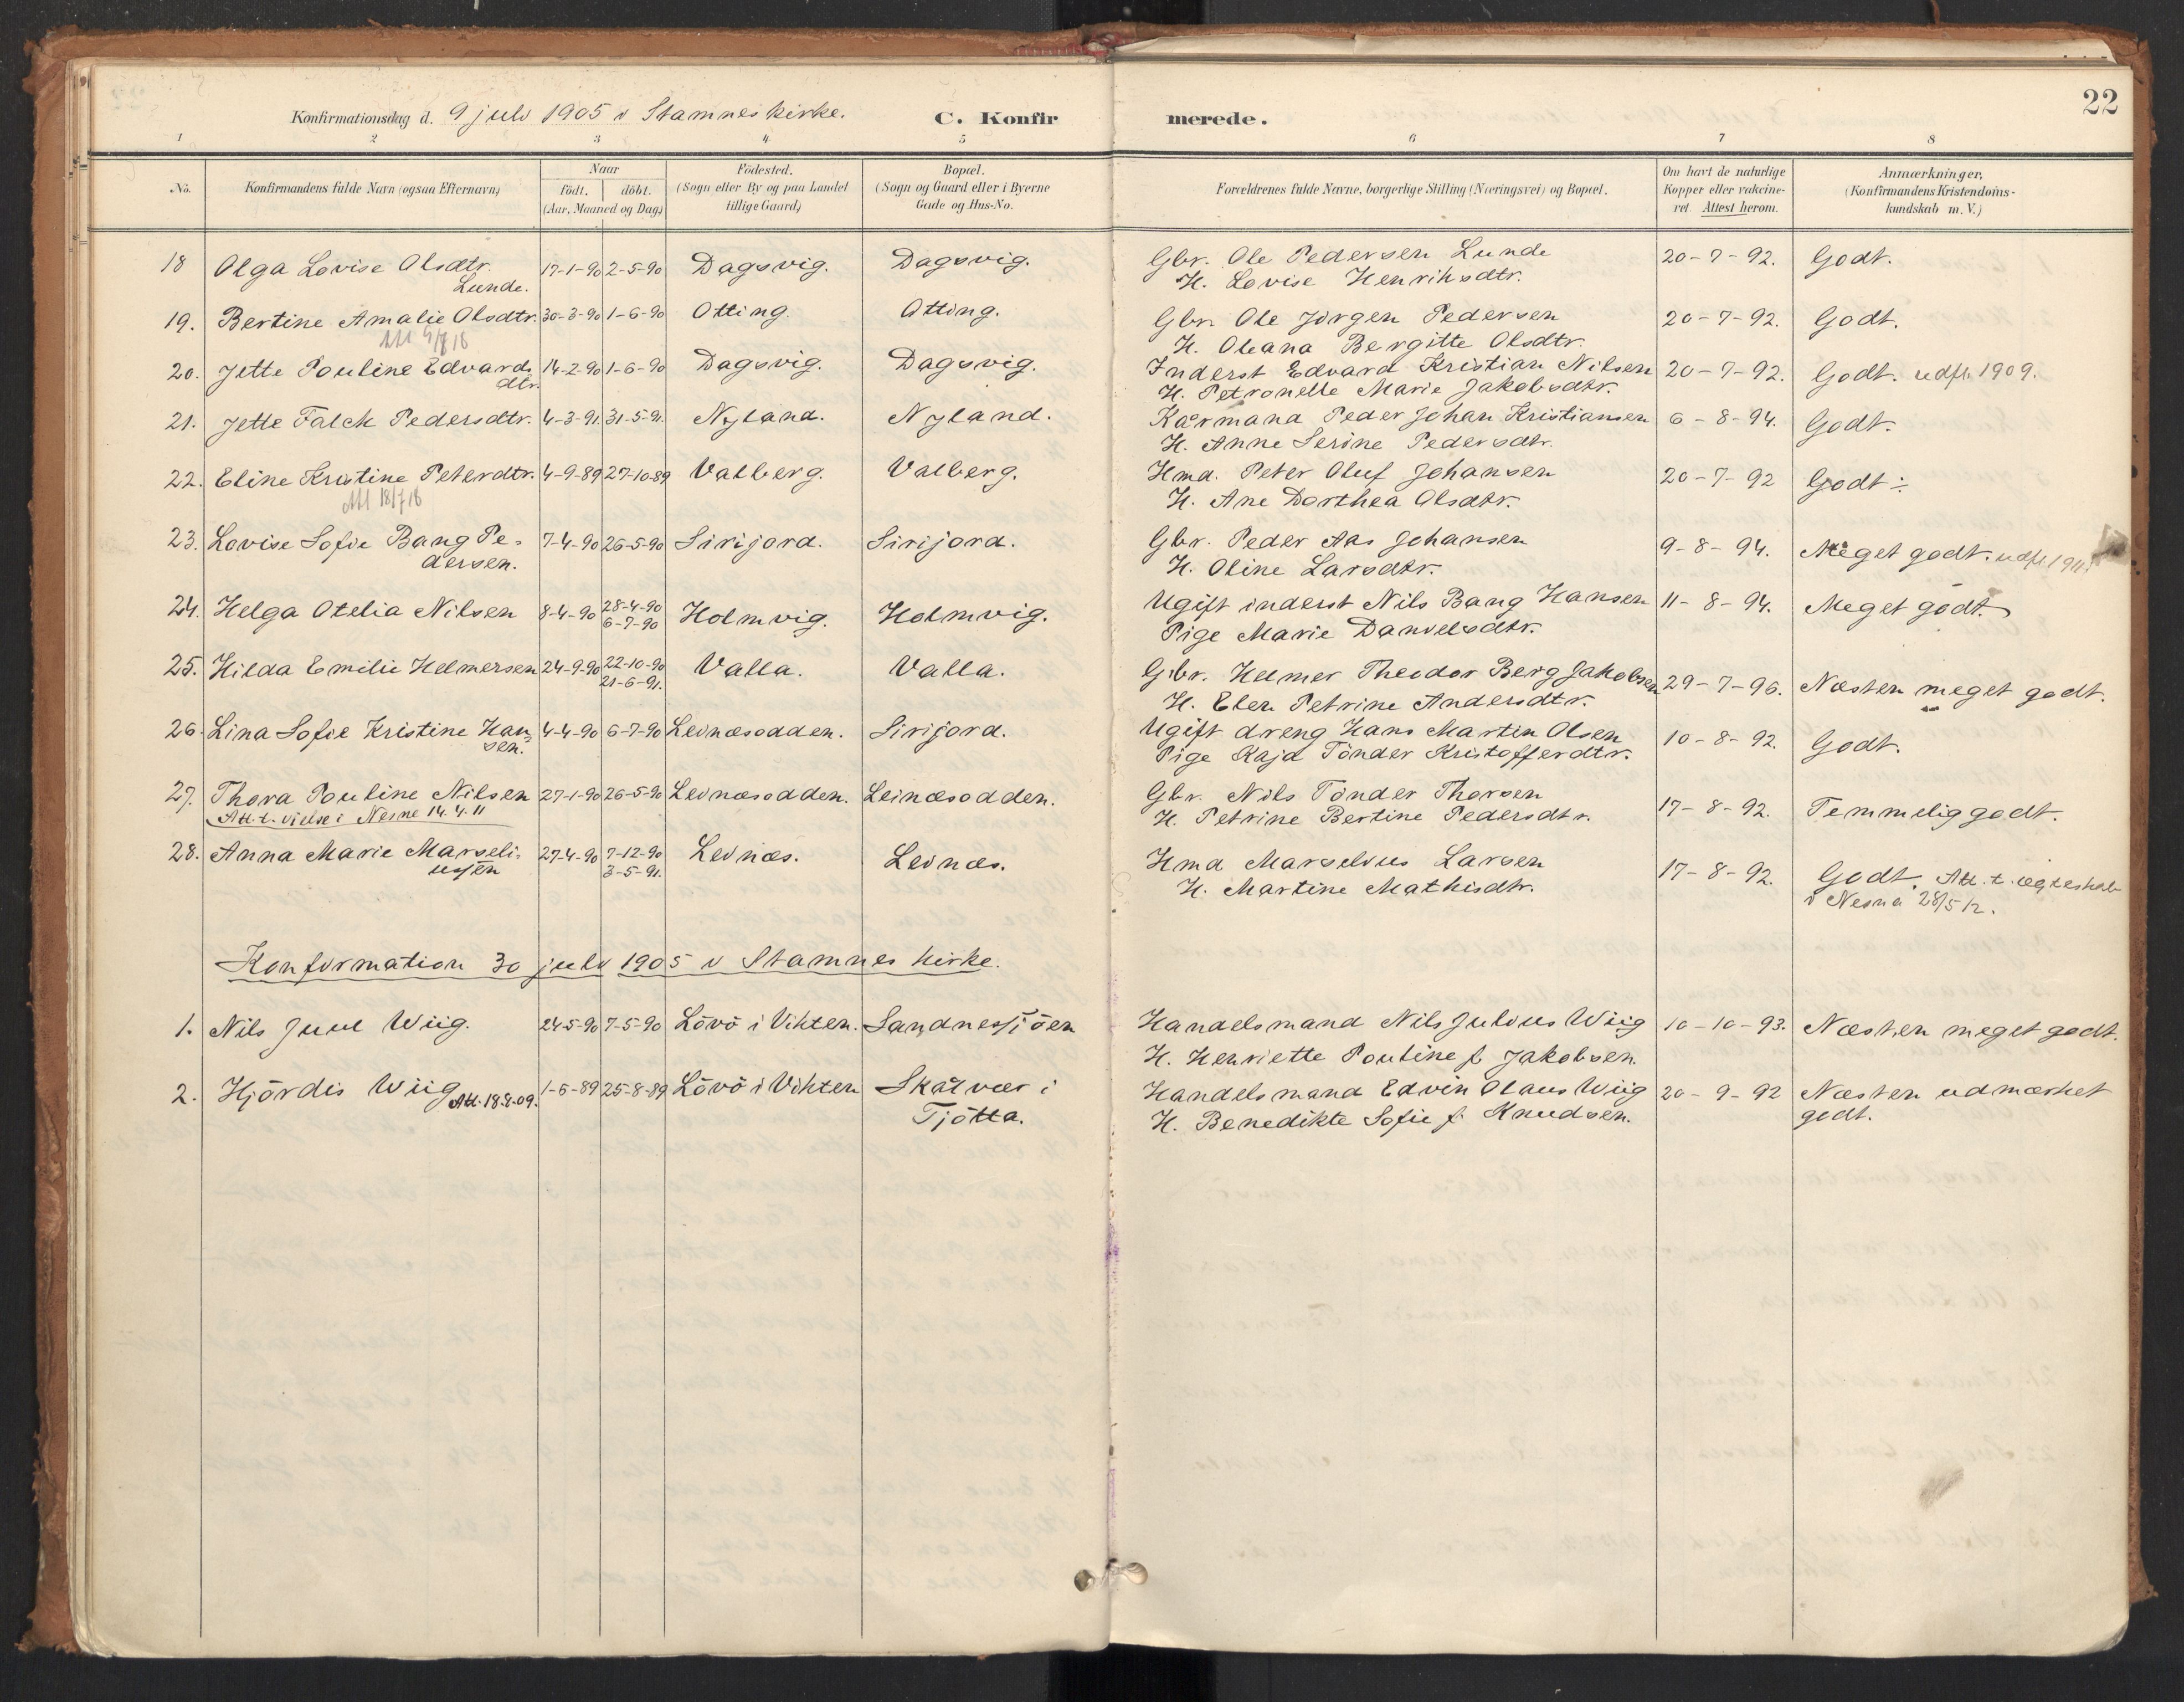 22
Konfirmationsdag d. 9 juli 1905 i Stamnes kirke. C. Konfirmerede.
1 2 3 4 5 6 7 8
No. Konfirmandens fulde Navn (ogsaa Efternavn) Naar født, døbt. (Aar, Maaned og Dag) Fødested. (Sogn eller By og paa Landet tillige Gaard) Bopæl. (Sogn og Gaard eller i Byerne Gade og Hus-No. Forældrenes fulde Navne, borgerlige Stilling (Næringsvei) og Bopæl. Om havt de naturlige Kopper eller vakcineret. Attest herom. Anmærkninger, (Konfirmandens Kristendomskundskab m. V.)
18 Olga Lovise Olsdtr. 17-1-90 2-5-90 Dagsvig. Dagsvig. Gbr. Ole Pedersen Lunde 20-7-92. Godt.
Lunde. H. Lovise Henriksdtr.
19. Bertine Amalie Olsdtr. 30-3-90 1-6-90 Otting. Otting. Gbr. Ole Jörgen Pedersen 20-7-92. Godt.
H. Oleana Bergitte Olsdtr.
20. Jette Pouline Edvards 14-2-90 1-6-90 Dagsvig. Dagsvig. Inderst Edvard Kristian Nilsen 20-7-92. Godt. udfl. 1909.
dtr. H. Petronelle Marie Jakobsdtr.
21. Jette Falck Pedersdtr. 4-3-91. 31-5-91. Nyland. Nyland. Kårmand Peder Johan Kristiansen 6-8-94. Godt.
H. Anne Serine Pedersdtr.
22. Eline Kristine Peterdtr. 4-9-89 27-10-89 Valberg. Valberg. Hmd. Peter Oluf Johansen 20-7-92 Godt ÷
Att 18/7 18 H. Ane Dorthea Olsdtr.
23. Lovise Sofie Bang Pe- 7-4-90 26-5-90 Sirijord. Sirijord. Gbr. Peder Aas Johansen 9-8-94. Meget godt. udfl.
dersen. H. Oline Larsdtr.
24. Helga Otelia Nilsen 8-4-90 28-4-90 Holmvig. Holmvig. Ugift inderst Nils Bang Hansen 11-8-94. Meget godt.
6-7-90 Pige Marie Danielsdtr.
25. Hilda Emilie Helmersen 24-9-90 22-10-90 Valla. Valla. Gbr. Helmer Theodor Berg Jakobsen 29-7-96. Næsten meget godt.
21-6-91. H. Elen Petrine Andersdtr.
26. Lina Sofie Kristine Han- 4-4-90 6-7-90 Leinæsodden. Sirijord. Ugift dreng Hans Martin Olsen 10-8-92. Godt.
sen. Pige Kaja Tönder Kristofferdtr.
27. Thora Pouline Nilsen 27-1-90 26-5-90 Leinæsodden. Leinæsodden. Gbr. Nils Tönder Thorsen 17-8-92. Temmelig godt.
Att. t. vielse i Nesne 14.4.11 H. Petrine Bertine Pedersdtr.
28. Anna Marie Marseli- 27-4-90 7-12-90 Leinæs. Leinæs. Hmd Marselius Larsen 17-8-92. Godt. Att. t. egteskab
usen 3-5-91. H. Martine Mathisdtr. i Nesna 28/5 12.
Konfirmation 30 juli 1905 i Stamnes kirke.
1. Nils Juul Wiig. 24-5-90 7-5-90 Lövö i Vikten. Sandnessjöen Handelsmand Nils Julius Wiig 10-10-93. Næsten meget godt.
H. Henriette Pouline f. Jakobsen.
2. Hjördis Wiig Att. 18.8.09. 1-6-89 25-8-89 Lövö i Vikten Skålvær i Handelsmand Edvin Olaus Wiig 20-9-92 Næsten udmærket
Tjötta. H. Benedikte Sofie f. Knudsen. godt.